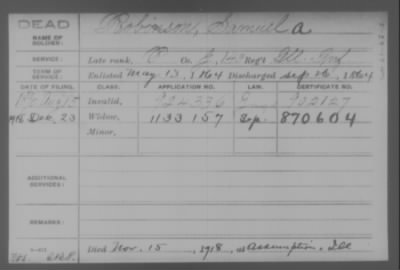 DEAD
NAME OF SOLDIER: Robinson, Samuel a
SERVICE: Late rank, Co. E, 143 Reg't Ill. Inf
TERM OF SERVICE: Enlisted May 13, 1864 Discharged Sep. 26, 1864
DATE OF FILING. CLASS. APPLICATION NO. LAW. CERTIFICATE NO.
Aug 15 Invalid,
1918 Dec. 23 Widow, 1133157 870604
Minor,
ADDITIONAL SERVICES:
REMARKS:
Died Nov. 15, 1918, at Assumption, Ill